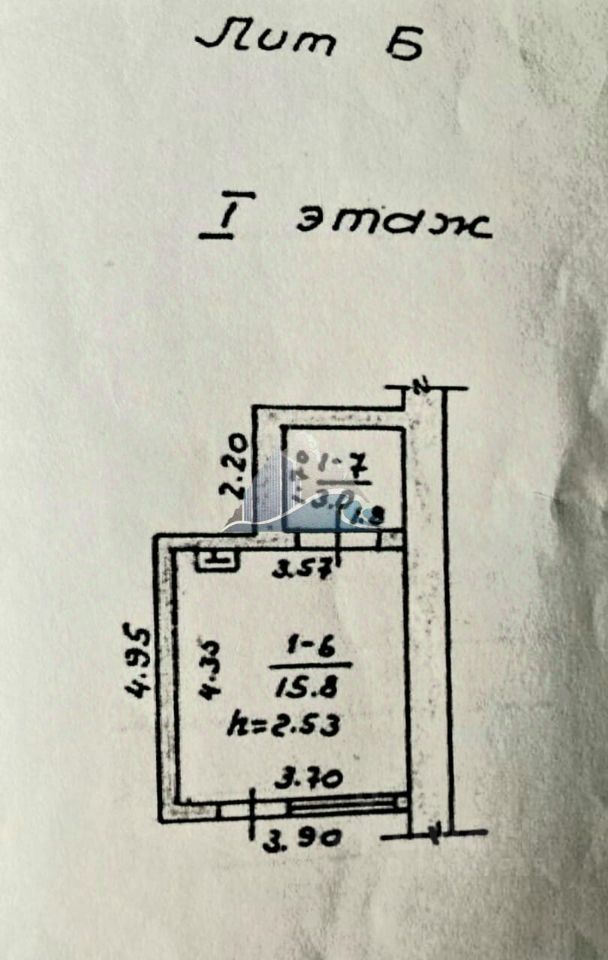 Лит Б
I этаж
2.20
1-7
3.0
1.8
3.57
4.95
4.35
1-6
15.8
h=2.53
3.70
3.90